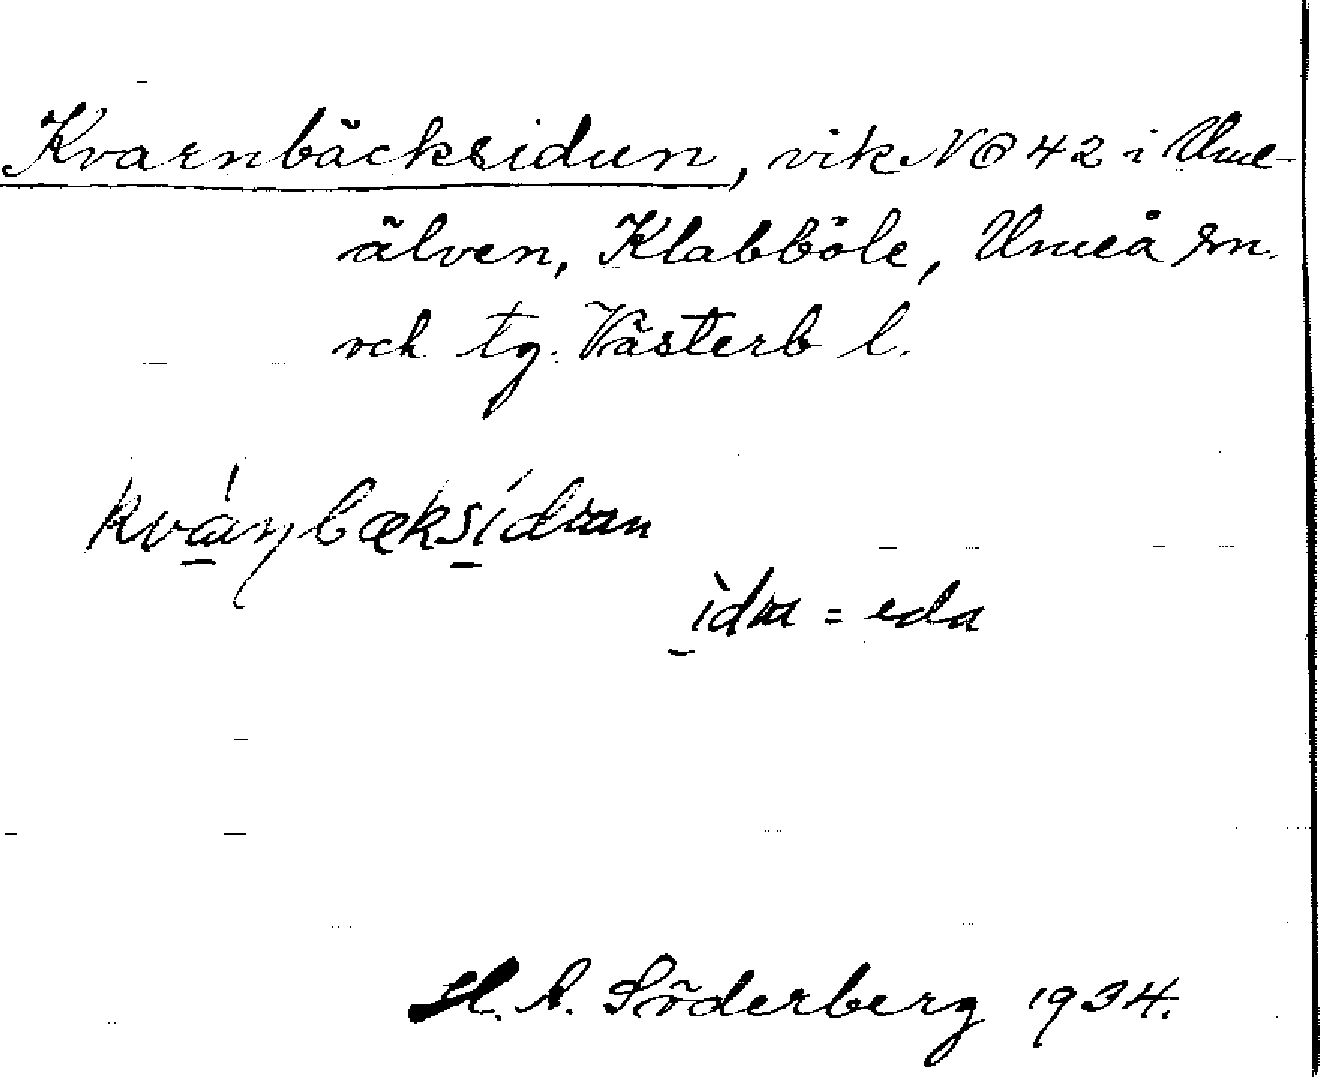 Kvarnbäcksidun, vik NO 42 i Ume-
älven, Klabböle, Umeå sn.
och tg. Västerb l.
= eda
H. A. Söderberg 1934.